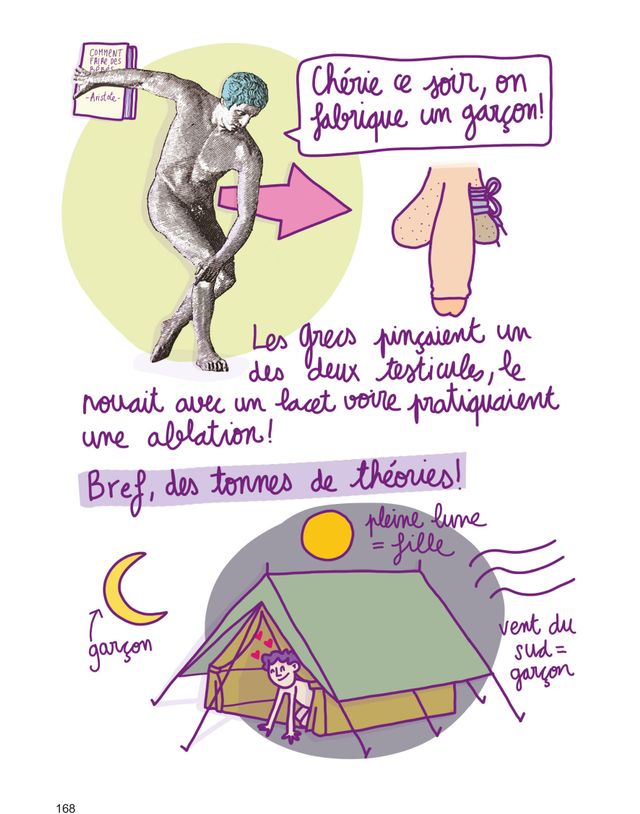 COMMENT
FAIRE DES
BÉBÉS
-Aristote-
Chérie ce soir, on
fabrique un garçon!
Les Grecs pinçaient un
des deux testicules, le
nouait avec un lacet voire pratiquaient
une ablation!
Bref, des tonnes de théories!
pleine lune
= fille
garçon
vent du
sud =
garçon
168